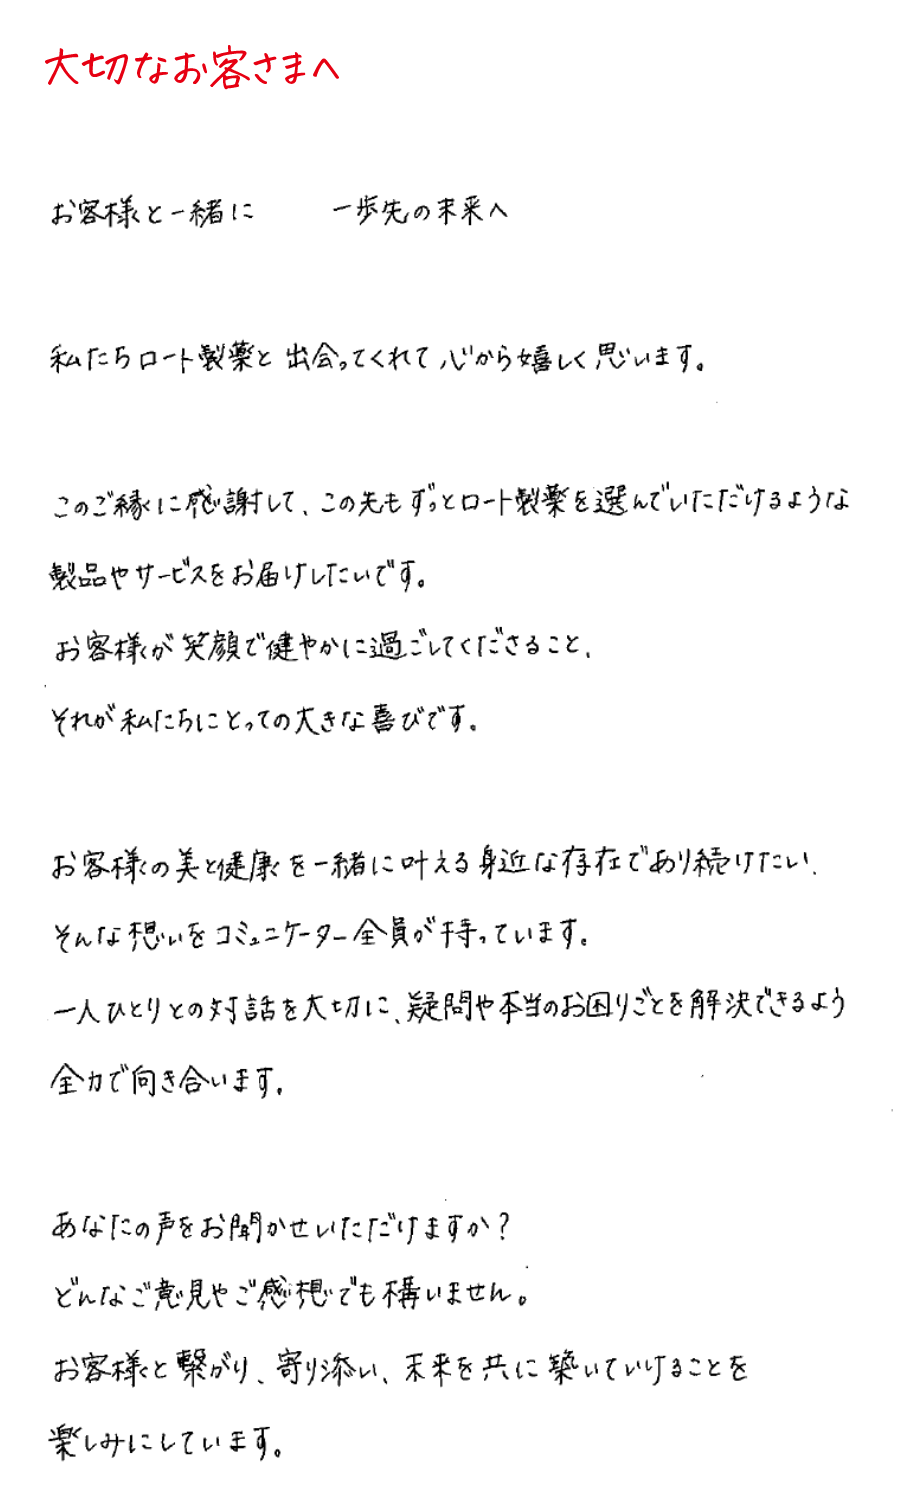 大切なお客さまへ
お客様と一緒に　　一歩先の未来へ
私たちロート製薬と出会ってくれて心から嬉しく思います。
このご縁に感謝して、この先もずっとロート製薬を選んでいただけるような
製品やサービスをお届けしたいです。
お客様が笑顔で健やかに過ごしてくださること、
それが私たちにとっての大きな喜びです。
お客様の美と健康を一緒に叶える身近な存在であり続けたい、
そんな想いをコミュニケーター全員が持っています。
一人ひとりとの対話を大切に、疑問や本当のお困りごとを解決できるよう
全力で向き合います。
あなたの声をお聞かせいただけますか？
どんなご意見やご感想でも構いません。
お客様と繋がり、寄り添い、未来を共に築いていけることを
楽しみにしています。